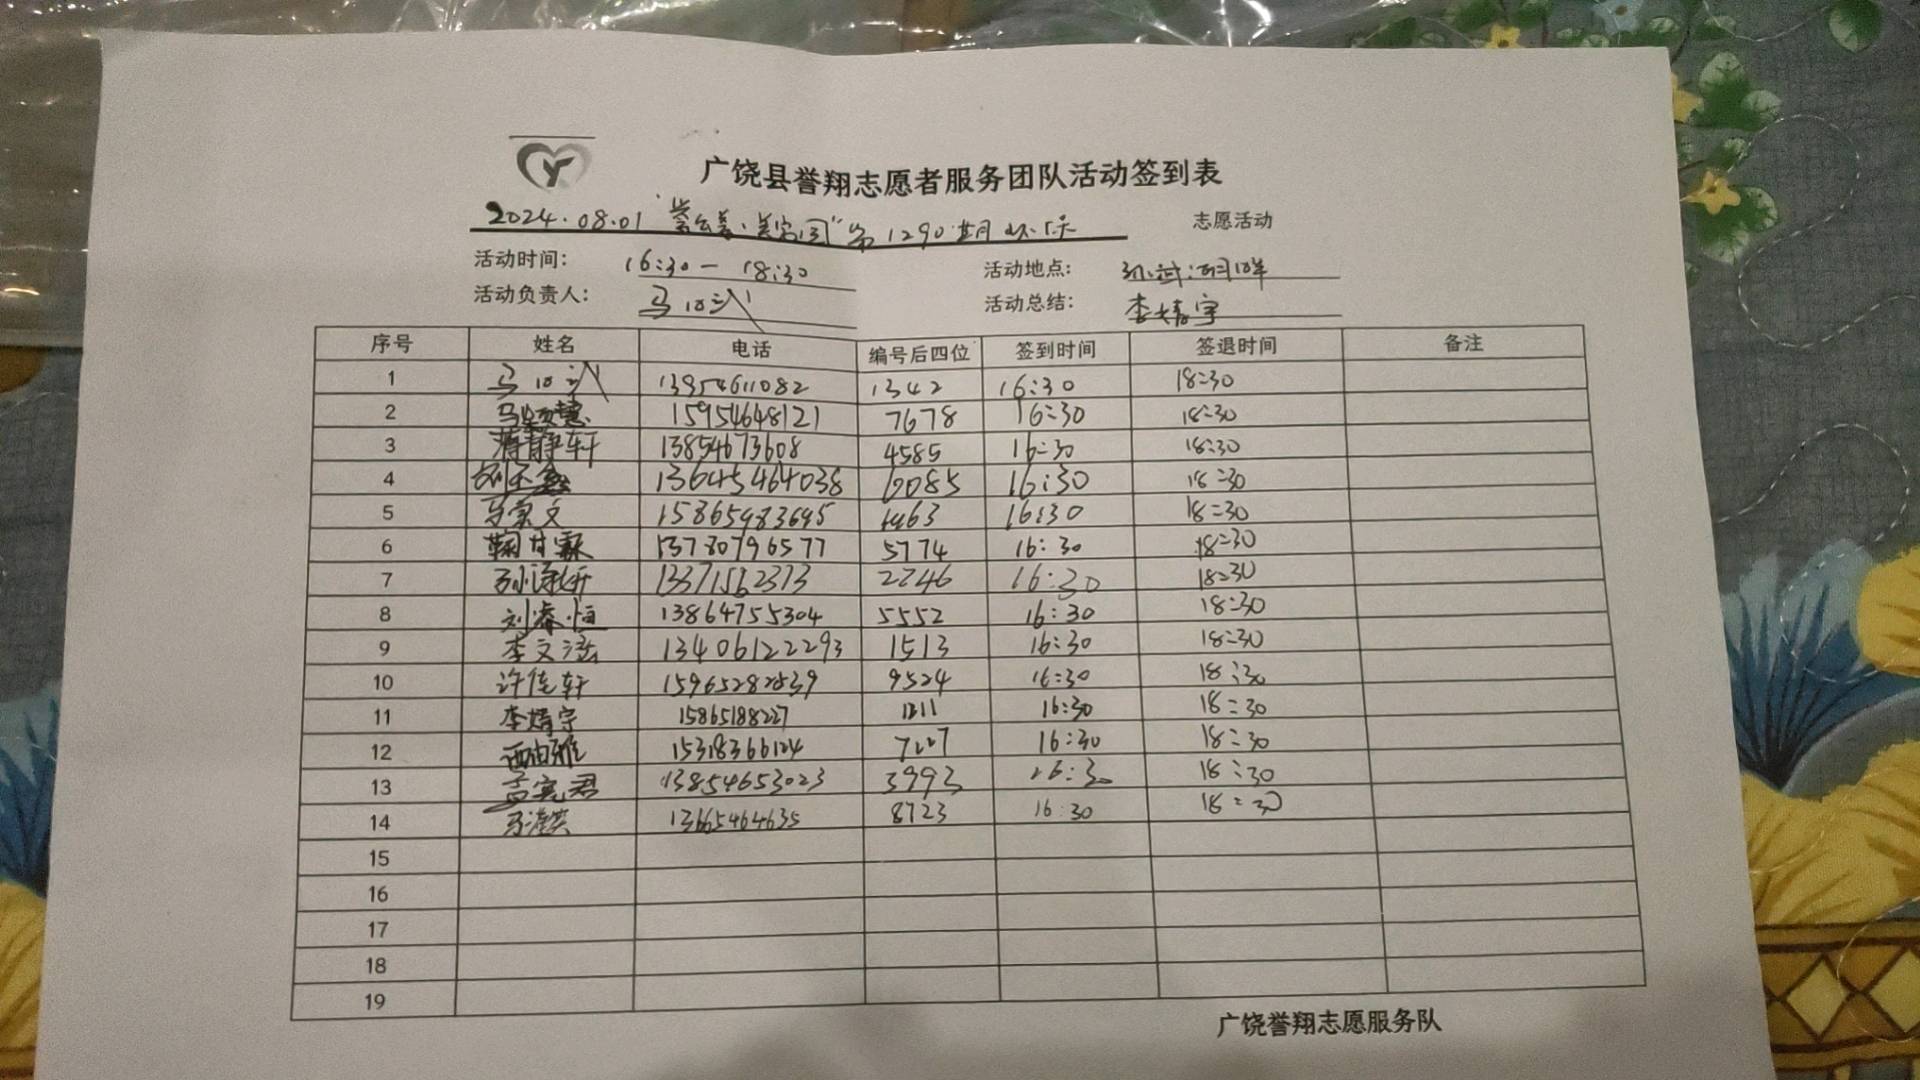 广饶县誉翔志愿者服务团队活动签到表
2024.08.01 第1290期 志愿活动
活动时间: 16:30 — 18:30 活动地点:
活动负责人: 马 活动总结: 李婧宇
序号 姓名 电话 编号后四位 签到时间 签退时间 备注
1 马 13954611082 1342 16:30 18:30
2 15954648121 7678 16:30 18:30
3 蒋静轩 13854673608 4585 16:30 18:30
4 13645464038 6085 16:30 18:30
5 马家文 15865983695 1463 16:30 18:30
6 鞠甘霖 13780796577 5774 16:30 18:30
7 13371562313 2246 16:30 18:30
8 刘睿恒 13864755304 5552 16:30 18:30
9 李文泓 13406122293 1513 16:30 18:30
10 许佳轩 9524 16:30 18:30
11 李婧宇 15865188227 1211 16:30 18:30
12 15318366124 16:30 18:30
13 13854653023 3993 16:30 18:30
14 13665464635 8723 16:30 18:30
15
16
17
18
19
广饶誉翔志愿服务队